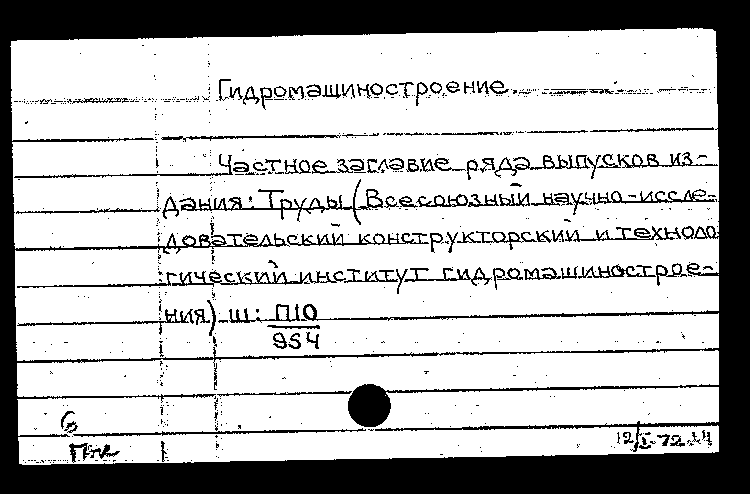 Гидромашиностроение.
Частное заглавие ряда выпусков из-
дания: Труды (Всесоюзный научно-иссле-
довательский конструкторский и техноло
гический институт гидромашинострое-
ния) ш: П10
954
6
12/I-72